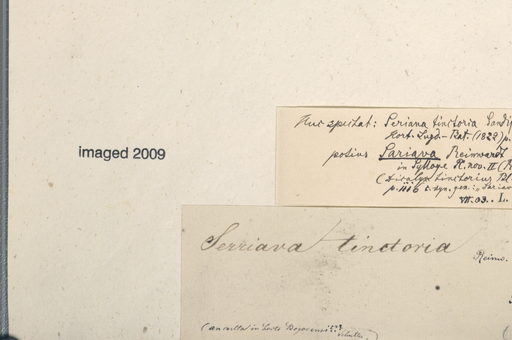 imaged 2009
Huc spectat: Seriana tinctoria
Hort. Lugd-Bat. (1822) p.
potius Sariava Reinwardt
in Sylloge Pl. nov. II
(Dicalyx tinctorius Bl
p. 1116 c. syn. gen.: „Sariav
VII.03. L.
Serriava tinctoria
Reinw.
in Horto Bogoriensi